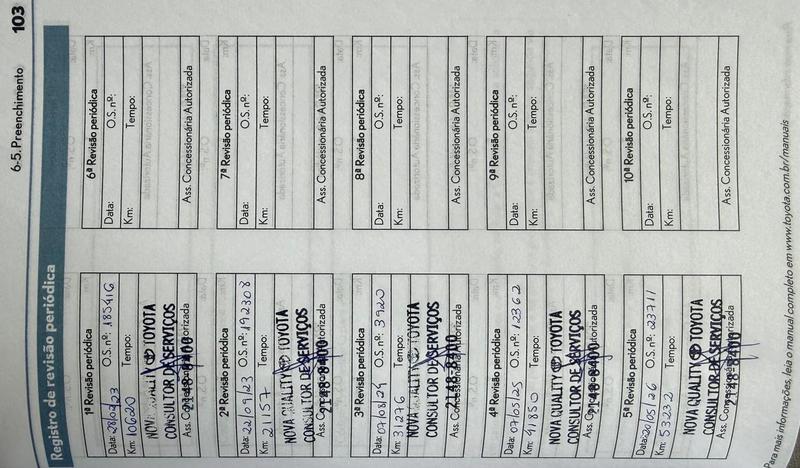 6-5. Preenchimento 103
Registro de revisão periódica
1ª Revisão periódica
Data: 28/02/23 O.S. nº: 185416
Km: 10620 Tempo:
NOVA QUALITY TOYOTA
CONSULTOR DE SERVIÇOS
Ass. Concessionária Autorizada
2148-8400
2ª Revisão periódica
Data: 22/09/23 O.S. nº: 192308
Km: 21157 Tempo:
NOVA QUALITY TOYOTA
CONSULTOR DE SERVIÇOS
Ass. Concessionária Autorizada
2148-8400
3ª Revisão periódica
Data: 07/08/24 O.S. nº: 3920
Km: 31276 Tempo:
NOVA QUALITY TOYOTA
CONSULTOR DE SERVIÇOS
Ass. Concessionária Autorizada
2148-8400
4ª Revisão periódica
Data: 07/03/25 O.S. nº: 12362
Km: 41850 Tempo:
NOVA QUALITY TOYOTA
CONSULTOR DE SERVIÇOS
Ass. Concessionária Autorizada
2148-8400
5ª Revisão periódica
Data: 20/05/26 O.S. nº: 23711
Km: 53232 Tempo:
NOVA QUALITY TOYOTA
CONSULTOR DE SERVIÇOS
Ass. Concessionária Autorizada
2148-8400
6ª Revisão periódica
Data: O.S. nº:
Km: Tempo:
Ass. Concessionária Autorizada
7ª Revisão periódica
Data: O.S. nº:
Km: Tempo:
Ass. Concessionária Autorizada
8ª Revisão periódica
Data: O.S. nº:
Km: Tempo:
Ass. Concessionária Autorizada
9ª Revisão periódica
Data: O.S. nº:
Km: Tempo:
Ass. Concessionária Autorizada
10ª Revisão periódica
Data: O.S. nº:
Km: Tempo:
Ass. Concessionária Autorizada
Para mais informações, leia o manual completo em www.toyota.com.br/manuais